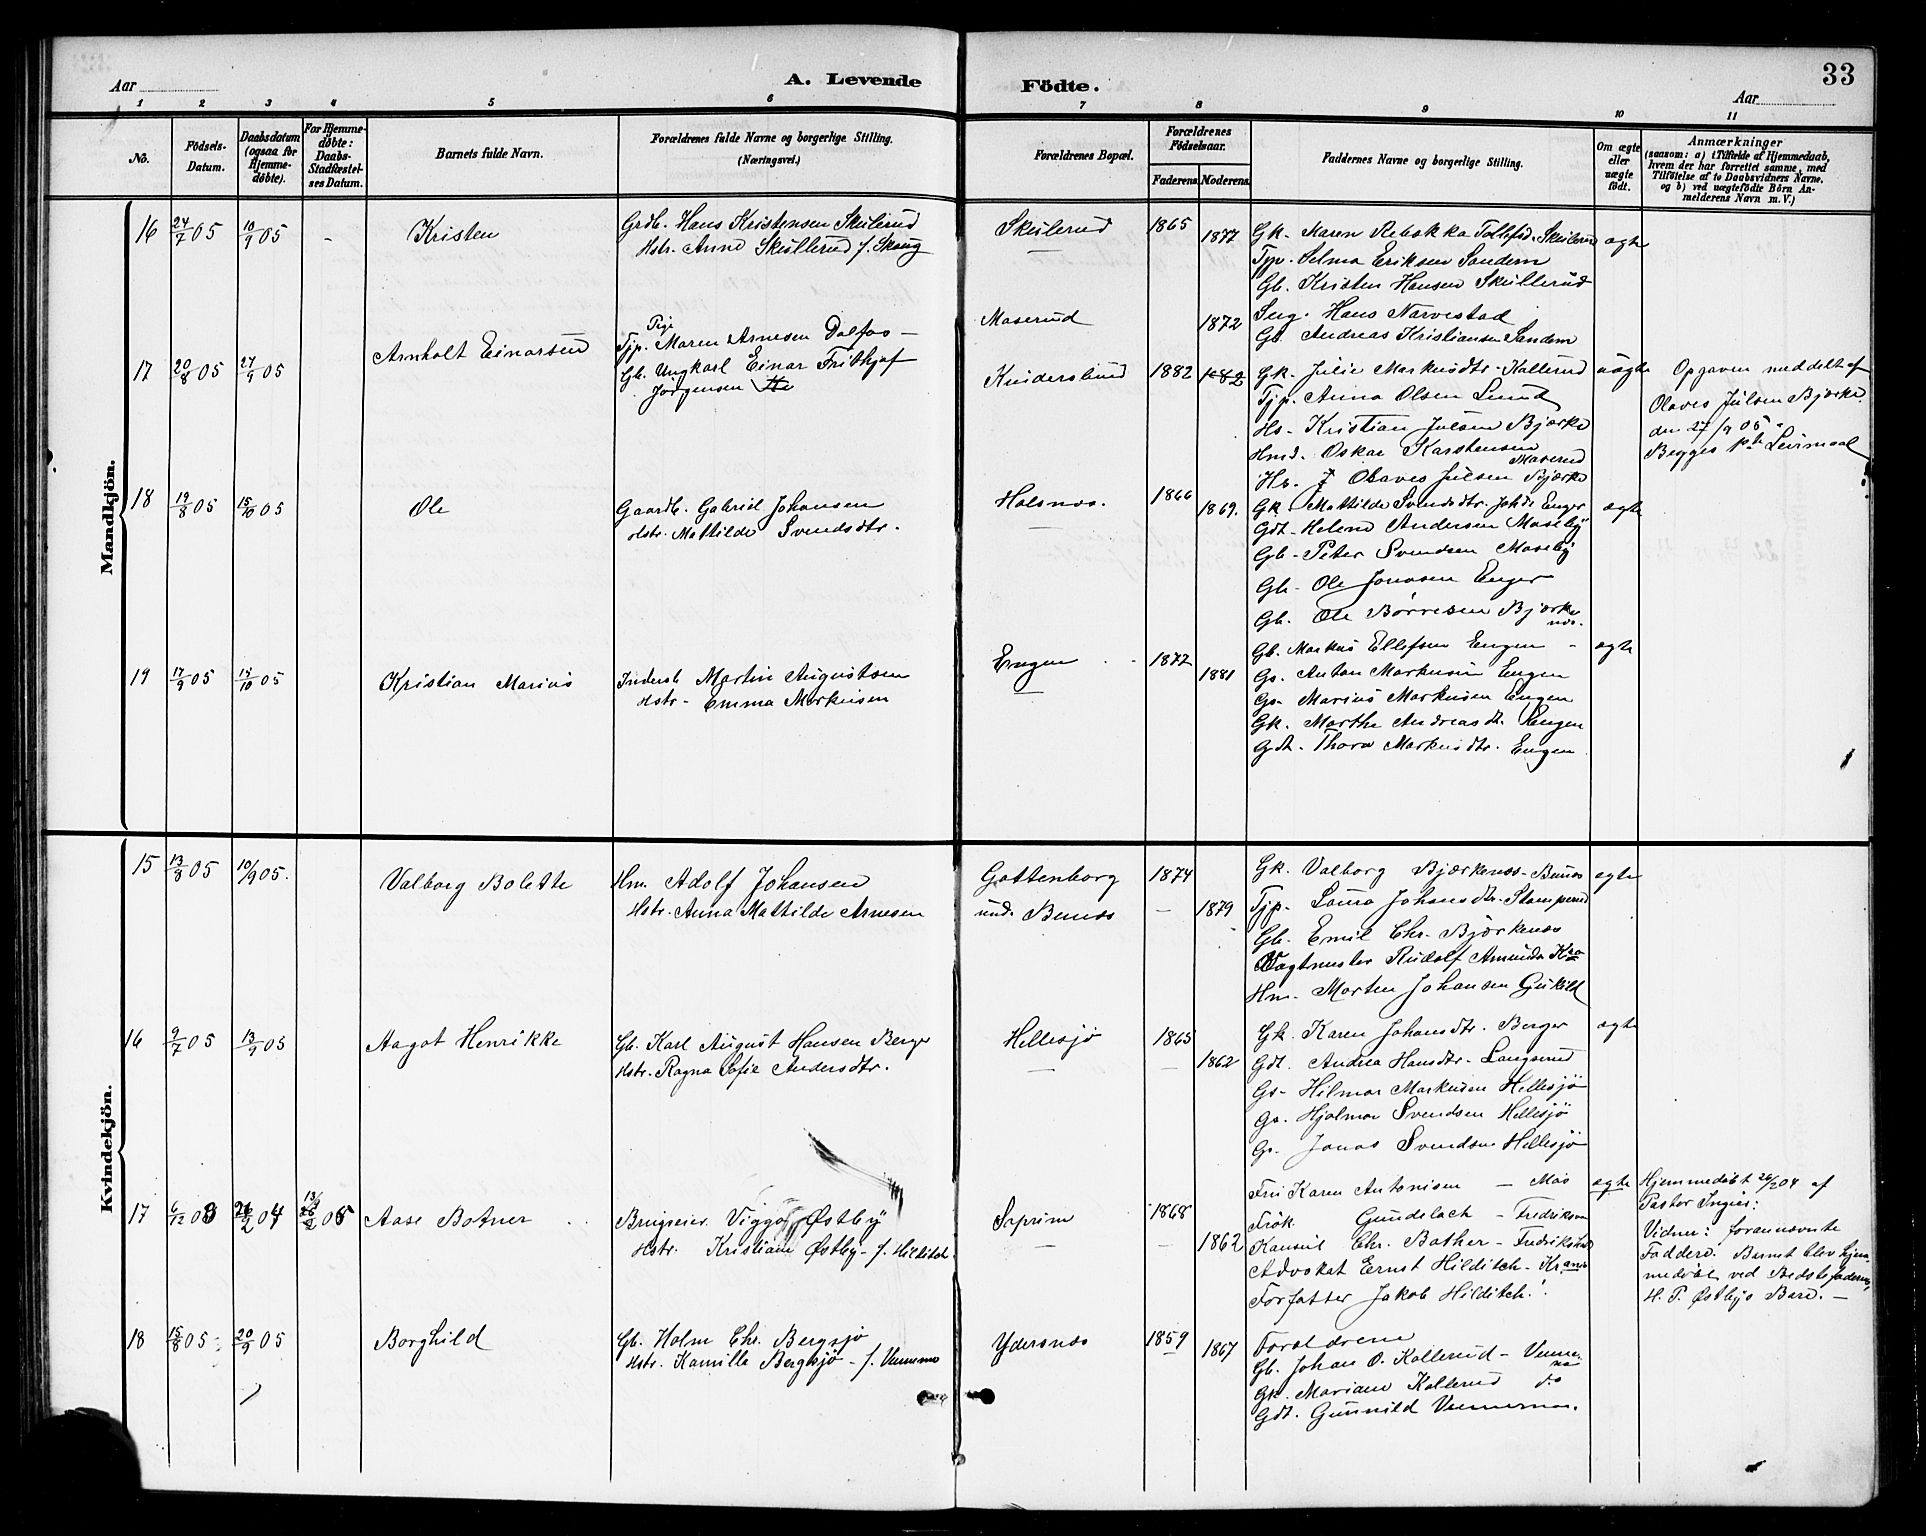 33
A. Levende Födte.
Aar
Aar
1 2 3 4 5 6 7 8 9 10 11
No.
Födsels-Datum.
Daabsdatum (ogsaa for Hjemme-döbte).
For Hjemme-döbte: Daabs-Stadfæstel-ses Datum.
Barnets fulde Navn.
Forældrenes fulde Navne og borgerlige Stilling.
(Næringsvei.)
Forældrenes Bopæl.
Forældrenes Födselsaar.
Faderens
Moderens
Faddernes Navne og borgerlige Stilling.
Om ægte eller uægte födt.
Anmærkninger
(saasom: a) i Tilfælde af Hjemmedaab,
hvem der har forrettet samme, med
Tilföielse af to Daabsvidners Navne.
og b) ved uægtefödte Börn An-
melderens Navn m. V.)
Mandkjön.
16 24/7 05 10/9 05 - Kristen
Grdb. Hans Kristensen Skullerud
Hstr. Anne Skullerud f. Skaug
Skulerud 1865 1877
Gk. Maren Rebekka Tollefsd. Skulerud ægte
Tjp. Selma Eriksen Sandem
Gb. Kristen Hansen Skullerud
Sag. Hans Narvestad
Gs. Andreas Kristiansen Sandem
17 20/8 05 27/9 05 Arnholt Einarsen
Pige
Tjp. Maren Arnesen Dalfos -
Gb. Ungkarl Einar Frithjof
Jörgensen
Maserud 1872
Kinderslund 1882 1882
Gk. Julie Markusdtr. Kallerud uægte
Tjp. Anna Olsen Lund
Hs. Kristian Julsen Bjørke
Hmd. Oskar Karstensen
Maserud
Hs. Olaves Julsen Bjørke
Opgaven meddelt af
Olaves Julsen Bjørke
den 27/9 05.
Begges 1ste Leirmaal
18 19/8 05 15/10 05 Ole
Gaardb. Gabriel Johansen
Hstr. Mathilde Svendsdtr.
Holsnæs. 1866 1869.
Gk. Mathilde Svendsdtr. Johds Enger ægte
Gdt. Helene Andersen Moseby
Gb. Peter Svendsen Moseby
Gb. Ole Jonasen Enger
Gb. Ole Børresen Bjørke
næs.
19 17/9 05 15/10 05 Kristian Marius
Inderst Martin Augustsen
Hstr. Emma Markusen
Engen 1872 1881
Gb. Markus Ellefsen Engen - ægte
Gs. Anton Markusen Engen
Gs. Marius Markusen Engen
Gk. Marthe Andreasdt. Engen
Gdt. Thora Markusdtr. Engen
Kvindekjön.
15 13/8 05 10/9 05. Valborg Bolette
Hm. Adolf Johansen
Hstr. Anna Mathilde Arnesen
Gottenborg
und. Bunæs
1874 1879
Gk. Valborg Bjørkenæs - Bunæs ægte
Tjp. Laura Johansdtr. Stamperud
Gb. Emil Chr. Bjørkenæs
Vagtmester Rudolf Amundsen Kra
Hm. Morten Johansen Gukild
16 9/7 05 13/9 05 Aagot Henrikke
Gb. Karl August Hansen Berger
Hstr. Ragna Sofie Andersdtr.
Hellesjö 1865 1862
Gk. Karen Johansdtr. Berger ægte
Gdt. Andrea Hansdtr. Langsrud
Gs. Hilmar Markusen Hellesjö
Gs. Hjalmar Svendsen Hellesjö
Gs. Jonas Svendsen Hellesjö
17 6/12 03 26/2 04 05 Aase Botner
Brugseier Viggo Østby
Hstr. Kristiane Østby - f. Hilditch.
Soprim 1868 1862
Fru Karen Antonisen - Mos ægte
Frök. Gundelach - Fredrikss
Konsul Chr. Bather - Fredriksha
Advokat Ernst Hilditch - Krania
Forfatter Jakob Hilditch.
Hjemmedøbt 26/2 04 af
Pastor Ingier:
Vidner: forannævnte
Faddere. Barnet blev hjem-
medøbt ved Bedstefaderens
H. P. Østbys Baare. -
18 15/8 05 20/9 05 Borghild
Gb. Holm Chr. Bergsjö
Hstr. Kamilla Bergsjö - f. Vennemo
Ydersnæs 1859 1867
Forældrene
Gb. Johan O. Kallerud - Venne-
Gk. Mariane Kallerud do
Gdt. Gunnild Vennemoe.